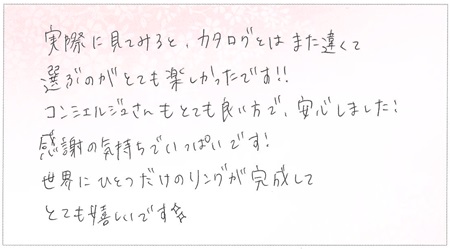 実際に見てみると、カタログとはまた違くて
選ぶのがとても楽しかったです!!
コンシェルジュさんもとても良い方で、安心しました!
感謝の気持ちでいっぱいです!
世界にひとつだけのリングが完成して
とても嬉しいです☆